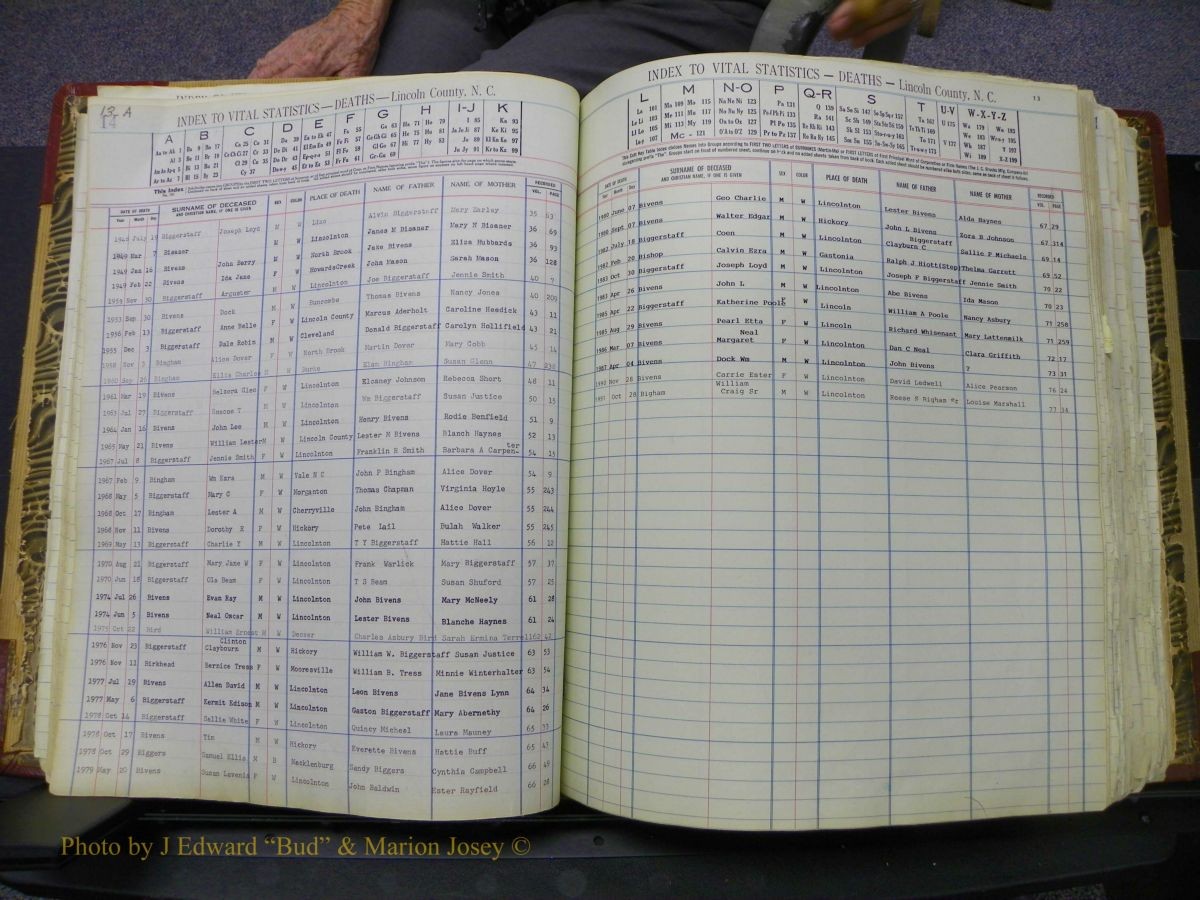 13 A
14
INDEX TO VITAL STATISTICS — DEATHS — Lincoln County, N. C.
A B C D E F G H I-J K
DATE OF DEATH SURNAME OF DECEASED SEX COLOR PLACE OF DEATH NAME OF FATHER NAME OF MOTHER RECORDED
Year Month Day AND CHRISTIAN NAME, IF ONE IS GIVEN VOL. PAGE
1948 July 19 Biggerstaff Joseph Loyd Alvin Biggerstaff Mary Earley 35 63
1949 Mar 7 Bisaner M W Lincolnton James M Bisaner Mary N Bisaner 36 69
1949 Jan 16 Bivens John Berry M W North Brook Jake Bivens Eliza Hubbards 36 93
1949 Feb 22 Bivens Ida Jane F W HowardsCreek John Mason Sarah Mason 36 128
1959 Nov 30 Biggerstaff Arguster M W Lincolnton Joe Biggerstaff Jennie Smith 40 7
1953 Sep 30 Bivens Dock M W Buncombe Thomas Bivens Nancy Jones 40 209
1956 Feb 13 Biggerstaff Anne Belle F W Lincoln County Marcus Aderholt Caroline Hesdick 43 11
1955 Dec 3 Biggerstaff Dale Robin M W Cleveland Donald Biggerstaff Carolyn Hollifield 43 21
1958 Nov 3 Bingham Alice Dover F W North Brook Martin Dover Mary Cobb 45 14
1960 Sep 26 Bingham Ellis Charles M W Burke Elam Bingham Susan Glenn 47 238
1961 Mar 19 Bivens Belzora Cleo F W Lincolnton Elcaney Johnson Rebecca Short 48 11
1963 Jul 27 Biggerstaff Roscoe T M W Lincolnton Wm Biggerstaff Susan Justice 50 15
1964 Jan 16 Bivens John Lee M W Lincolnton Henry Bivens Rodie Benfield 51 9
1965 May 21 Bivens William Lester M W Lincoln County Lester M Bivens Blanch Haynes 52 13
1967 Jul 8 Biggerstaff Jennie Smith F W Lincolnton Franklin R Smith Barbara A Carpen-ter 54 15
1967 Feb 9 Bingham Wm Ezra M W Vale N C John P Bingham Alice Dover 54 9
1968 May 5 Biggerstaff Mary C F W Morganton Thomas Chapman Virginia Hoyle 55 243
1968 Oct 17 Bingham Lester A M W Cherryville John Bingham Alice Dover 55 244
1968 Nov 11 Bivens Dorothy E F W Hickory Pete Lail Bulah Walker 55 245
1969 May 13 Biggerstaff Charlie Y M W Lincolnton T Y Biggerstaff Hattie Hall 56 12
1970 Aug 21 Biggerstaff Mary Jane W F W Lincolnton Frank Warlick Mary Biggerstaff 57 37
1970 Jun 18 Biggerstaff Ola Beam F W Lincolnton T S Beam Susan Shuford 57 25
1974 Jul 26 Bivens Evan Ray M W Lincolnton John Bivens Mary McNeely 61 28
1974 Jun 5 Bivens Neal Oscar M W Lincolnton Lester Bivens Blanche Haynes 61 24
1975 Oct 22 Bird William Ernest M W Denver Charles Asbury Bird Sarah Ermina Terrell 62 42
1976 Nov 23 Biggerstaff Clinton Claybourn M W Hickory William W. Biggerstaff Susan Justice 63 53
1976 Nov 11 Birkhead Bernice Tress F W Mooresville William B. Tress Minnie Winterhalter 63 54
1977 Jul 19 Bivens Allen David M W Lincolnton Leon Bivens Jane Bivens Lynn 64 34
1977 May 6 Biggerstaff Kermit Edison M W Lincolnton Gaston Biggerstaff Mary Abernethy 64 26
1978 Oct 14 Biggerstaff Sallie White F W Lincolnton Quincy Micheal Laura Mauney 65 33
1978 Oct 17 Bivens Tim M W Hickory Everette Bivens Hattie Huff 65 47
1978 Oct 29 Biggers Samuel Ellis M B Mecklenburg Sandy Biggers Cynthia Campbell 66 49
1979 May 20 Bivens Susan Lavenia F W Lincolnton John Baldwin Ester Rayfield 66 28
INDEX TO VITAL STATISTICS — DEATHS — Lincoln County, N. C. 13
L M N-O P Q-R S T U-V W-X-Y-Z
DATE OF DEATH SURNAME OF DECEASED SEX COLOR PLACE OF DEATH NAME OF FATHER NAME OF MOTHER RECORDED
Year Month Day AND CHRISTIAN NAME, IF ONE IS GIVEN VOL. PAGE
1980 June 07 Bivens Geo Charlie M W Lincolnton Lester Bivens Alda Haynes 67 29
1980 Sept 07 Bivens Walter Edgar M W Hickory John L Bivens Zora B Johnson 67 314
1982 July 18 Biggerstaff Coen M W Lincolnton Biggerstaff Clayburn C Sallie P Michaels 69 14
1982 Feb 20 Bishop Calvin Ezra M W Gastonia Ralph J Hiott(Stop) Thelma Garrett 69 52
1983 Oct 30 Biggerstaff Joseph Loyd M W Lincolnton Joseph F Biggerstaff Jennie Smith 70 22
1983 Apr 26 Bivens John L M W Lincolnton Abe Bivens Ida Mason 70 23
1985 Apr 22 Biggerstaff Katherine Poole F W Lincoln William A Poole Nancy Asbury 71 258
1985 Aug 29 Bivens Pearl Etta F W Lincolnton Richard Whisenant Mary Lattenmilk 71 259
1986 Mar 07 Bivens Neal Margaret F W Lincoln Dan C Neal Clara Griffith 72 17
1987 Apr 04 Bivens Dock Wm M W Lincolnton John Bivens ? 73 31
1990 Nov 28 Bivens Carrie Ester F W Lincolnton David Ledwell Alice Pearson 76 24
1991 Oct 28 Bigham William Craig Sr M W Lincolnton Reese S Bigham Sr Louise Marshall 77 34
Photo by J Edward “Bud” & Marion Josey ©